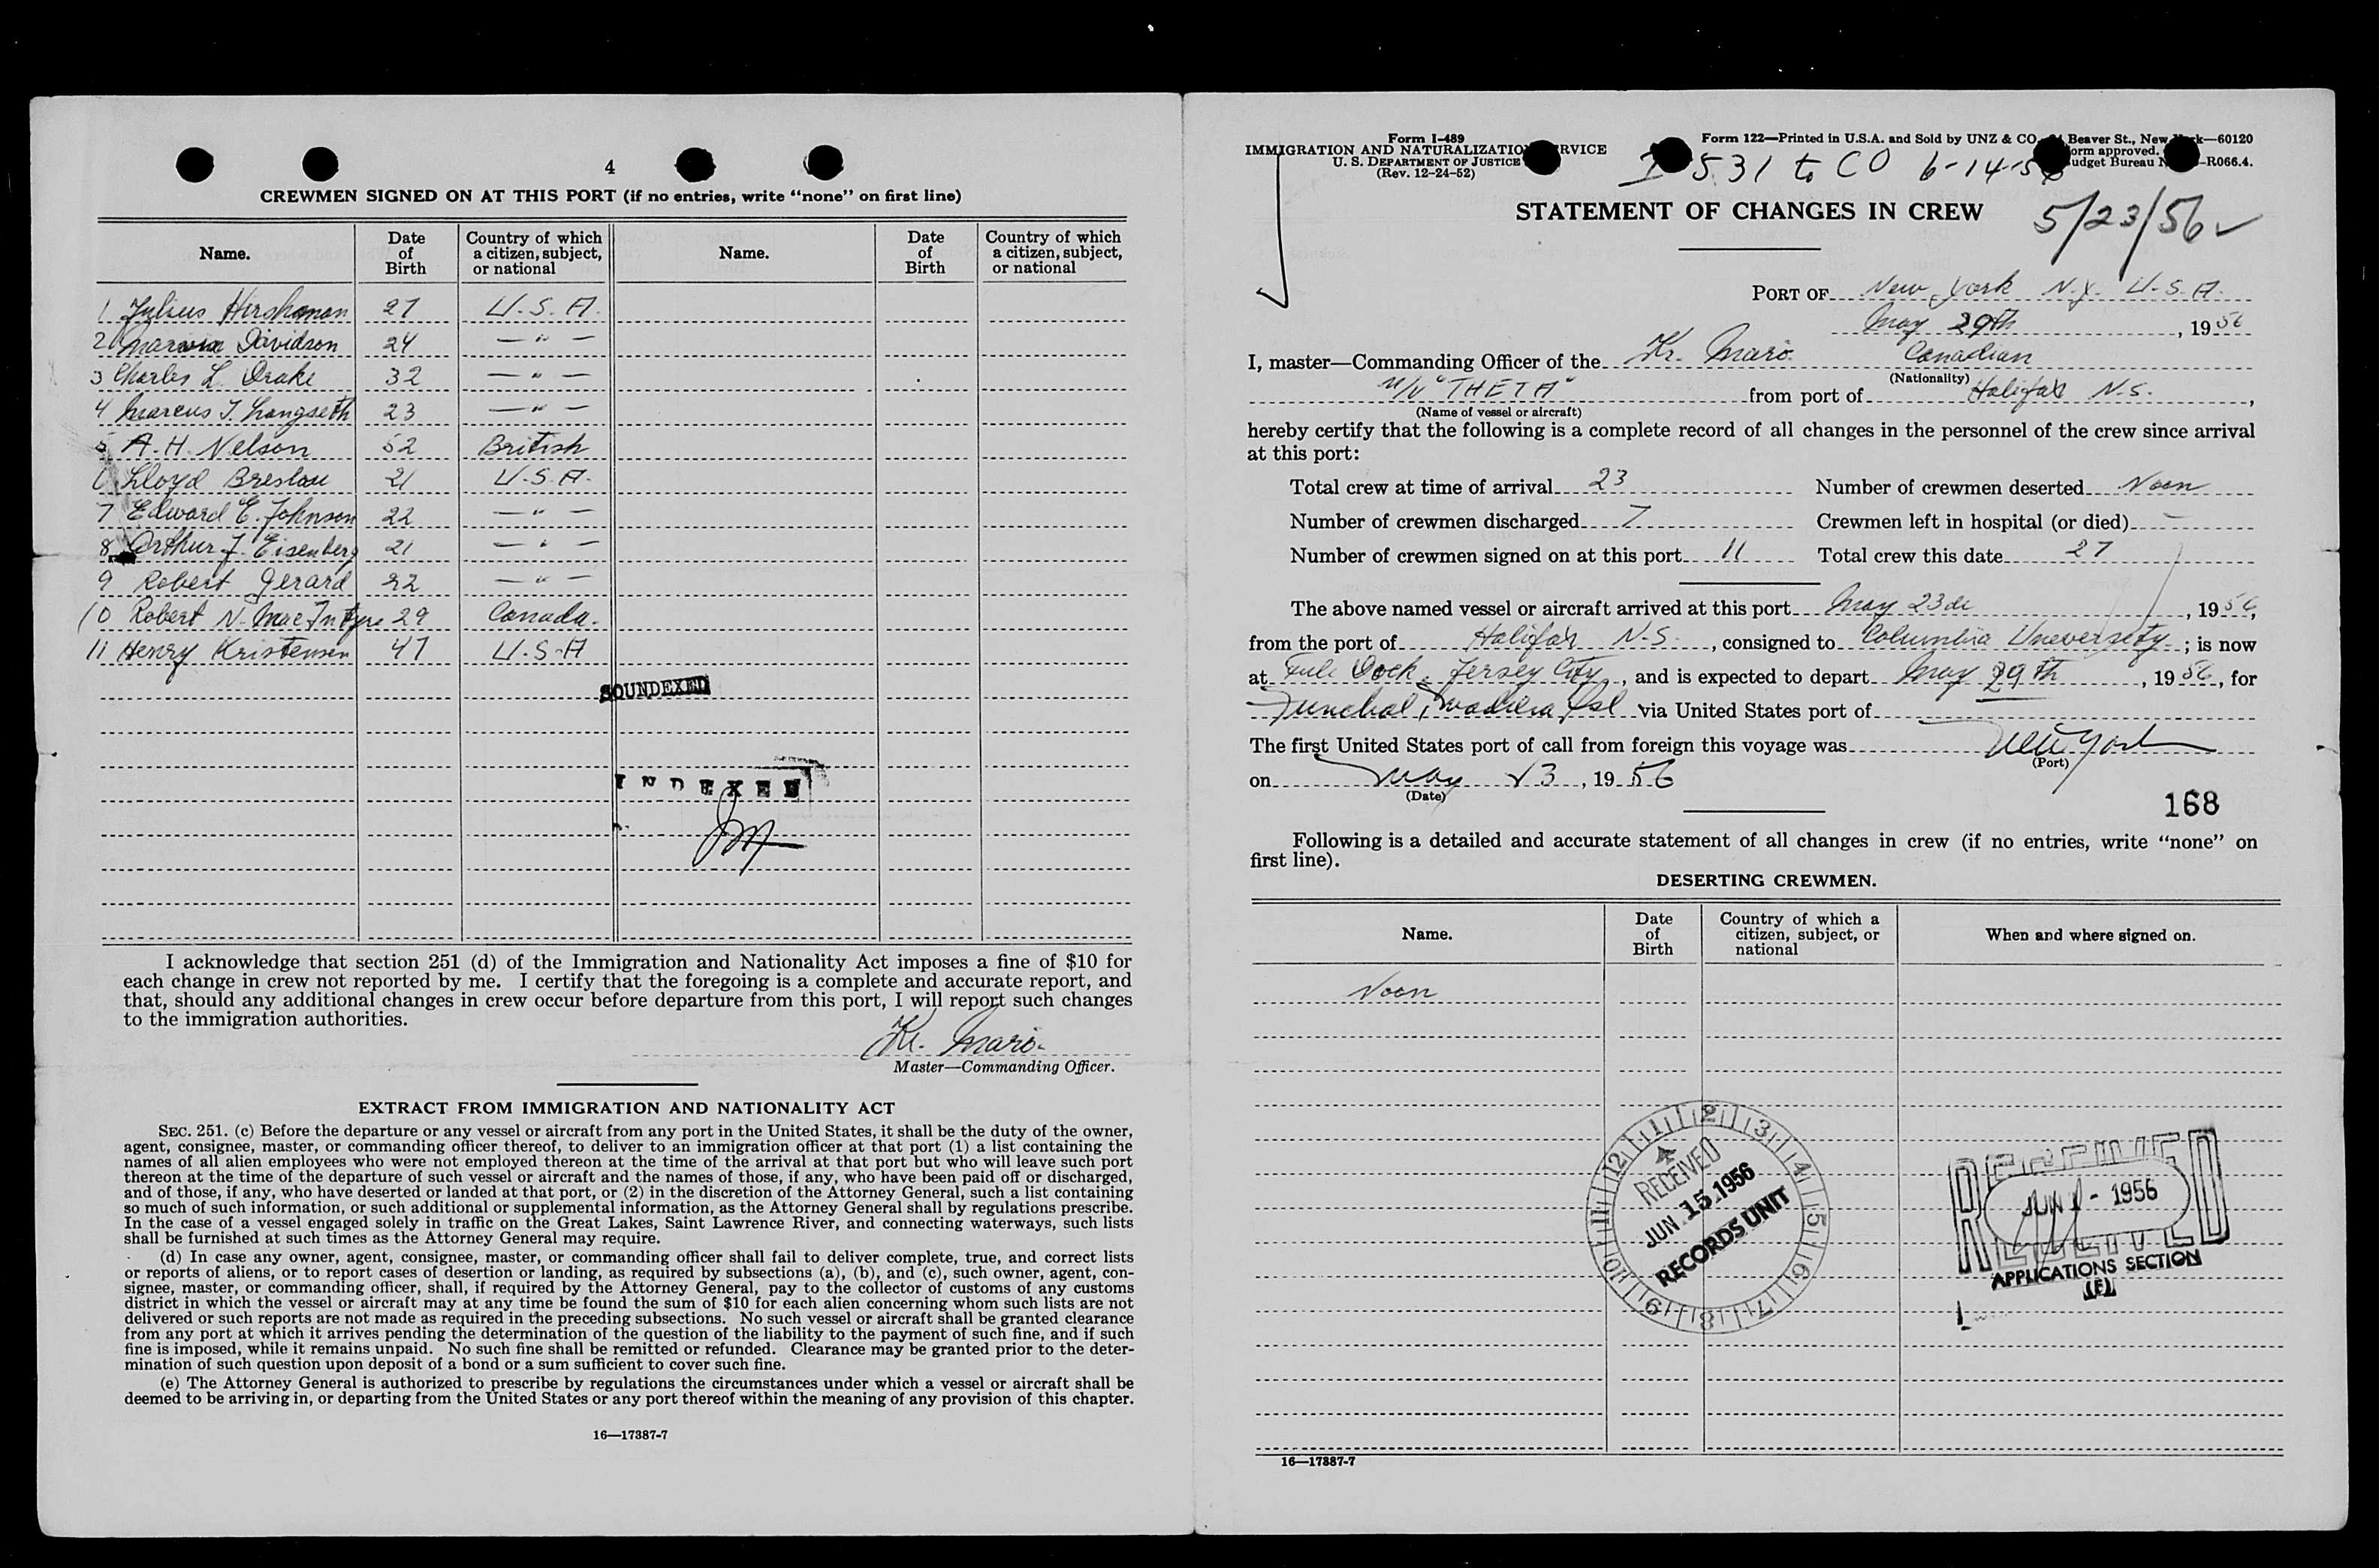 4
CREWMEN SIGNED ON AT THIS PORT (if no entries, write “none” on first line)
Name. Date of Birth Country of which a citizen, subject, or national Name. Date of Birth Country of which a citizen, subject, or national
1 Julius Hirshman 27 U.S.A.
2 Marvin Davidson 24 — " —
3 Charles L. Drake 32 — " —
4 Marcus J. Langseth 23 — " —
5 A.H. Nelson 52 British
6 Lloyd Breslau 21 U.S.A.
7 Edward E. Johnson 22 — " —
8 Arthur J. Eisenberg 21 — " —
9 Robert Gerard 22 — " —
10 Robert N. MacIntyre 29 Canada.
11 Henry Kristensen 47 U.S.A
SOUNDEXED
INDEXED
I acknowledge that section 251 (d) of the Immigration and Nationality Act imposes a fine of $10 for
each change in crew not reported by me. I certify that the foregoing is a complete and accurate report, and
that, should any additional changes in crew occur before departure from this port, I will report such changes
to the immigration authorities.
Kr. Maro.
Master—Commanding Officer.
EXTRACT FROM IMMIGRATION AND NATIONALITY ACT
SEC. 251. (c) Before the departure or any vessel or aircraft from any port in the United States, it shall be the duty of the owner,
agent, consignee, master, or commanding officer thereof, to deliver to an immigration officer at that port (1) a list containing the
names of all alien employees who were not employed thereon at the time of the arrival at that port but who will leave such port
thereon at the time of the departure of such vessel or aircraft and the names of those, if any, who have been paid off or discharged,
and of those, if any, who have deserted or landed at that port, or (2) in the discretion of the Attorney General, such a list containing
so much of such information, or such additional or supplemental information, as the Attorney General shall by regulations prescribe.
In the case of a vessel engaged solely in traffic on the Great Lakes, Saint Lawrence River, and connecting waterways, such lists
shall be furnished at such times as the Attorney General may require.
(d) In case any owner, agent, consignee, master, or commanding officer shall fail to deliver complete, true, and correct lists
or reports of aliens, or to report cases of desertion or landing, as required by subsections (a), (b), and (c), such owner, agent, con-
signee, master, or commanding officer, shall, if required by the Attorney General, pay to the collector of customs of any customs
district in which the vessel or aircraft may at any time be found the sum of $10 for each alien concerning whom such lists are not
delivered or such reports are not made as required in the preceding subsections. No such vessel or aircraft shall be granted clearance
from any port at which it arrives pending the determination of the question of the liability to the payment of such fine, and if such
fine is imposed, while it remains unpaid. No such fine shall be remitted or refunded. Clearance may be granted prior to the deter-
mination of such question upon deposit of a bond or a sum sufficient to cover such fine.
(e) The Attorney General is authorized to prescribe by regulations the circumstances under which a vessel or aircraft shall be
deemed to be arriving in, or departing from the United States or any port thereof within the meaning of any provision of this chapter.
16—17387-7
Form I-489
IMMIGRATION AND NATURALIZATION SERVICE
U. S. DEPARTMENT OF JUSTICE
(Rev. 12-24-52)
Form 122—Printed in U.S.A. and Sold by UNZ & CO Beaver St., New York—60120
Form approved.
Budget Bureau -R066.4.
I 531 to CO 6-14-56
STATEMENT OF CHANGES IN CREW
5/23/56
PORT OF New York N.Y. U.S.A.
May 29th, 1956
I, master—Commanding Officer of the Kr. Maro. Canadian
(Nationality)
M/V "THETA" from port of Halifax N.S.,
(Name of vessel or aircraft)
hereby certify that the following is a complete record of all changes in the personnel of the crew since arrival
at this port:
Total crew at time of arrival 23 Number of crewmen deserted Noon
Number of crewmen discharged 7 Crewmen left in hospital (or died) —
Number of crewmen signed on at this port 11 Total crew this date 27
The above named vessel or aircraft arrived at this port May 23de, 1956,
from the port of Halifax N.S., consigned to Columbia Uneversety; is now
at Dock, Jersey City, and is expected to depart May 29th, 1956, for
Funchal, Madiera Isl via United States port of
The first United States port of call from foreign this voyage was New York
(Port)
on May 23, 1956
(Date)
168
Following is a detailed and accurate statement of all changes in crew (if no entries, write “none” on
first line).
DESERTING CREWMEN.
Name. Date of Birth Country of which a citizen, subject, or national When and where signed on.
Noon
12 1 2 3 4 5 6 7 8 9 10 11
RECEIVED
JUN 15 1956
RECORDS UNIT
RECEIVED
JUN 1 - 1956
APPLICATIONS SECTION
(E)
16—17387-7